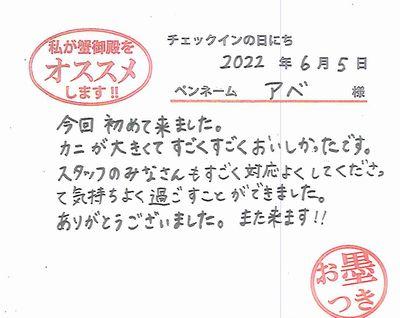 私が蟹御殿を
オススメ
します!!
チェックインの日にち
2022 年 6 月 5 日
ペンネーム アベ 様
今回 初めて来ました。
カニが大きくてすごくすごくおいしかったです。
スタッフのみなさんもすごく対応よくしてくださっ
て気持ちよく過ごすことができました。
ありがとうございました。また来ます!!
お墨
つき